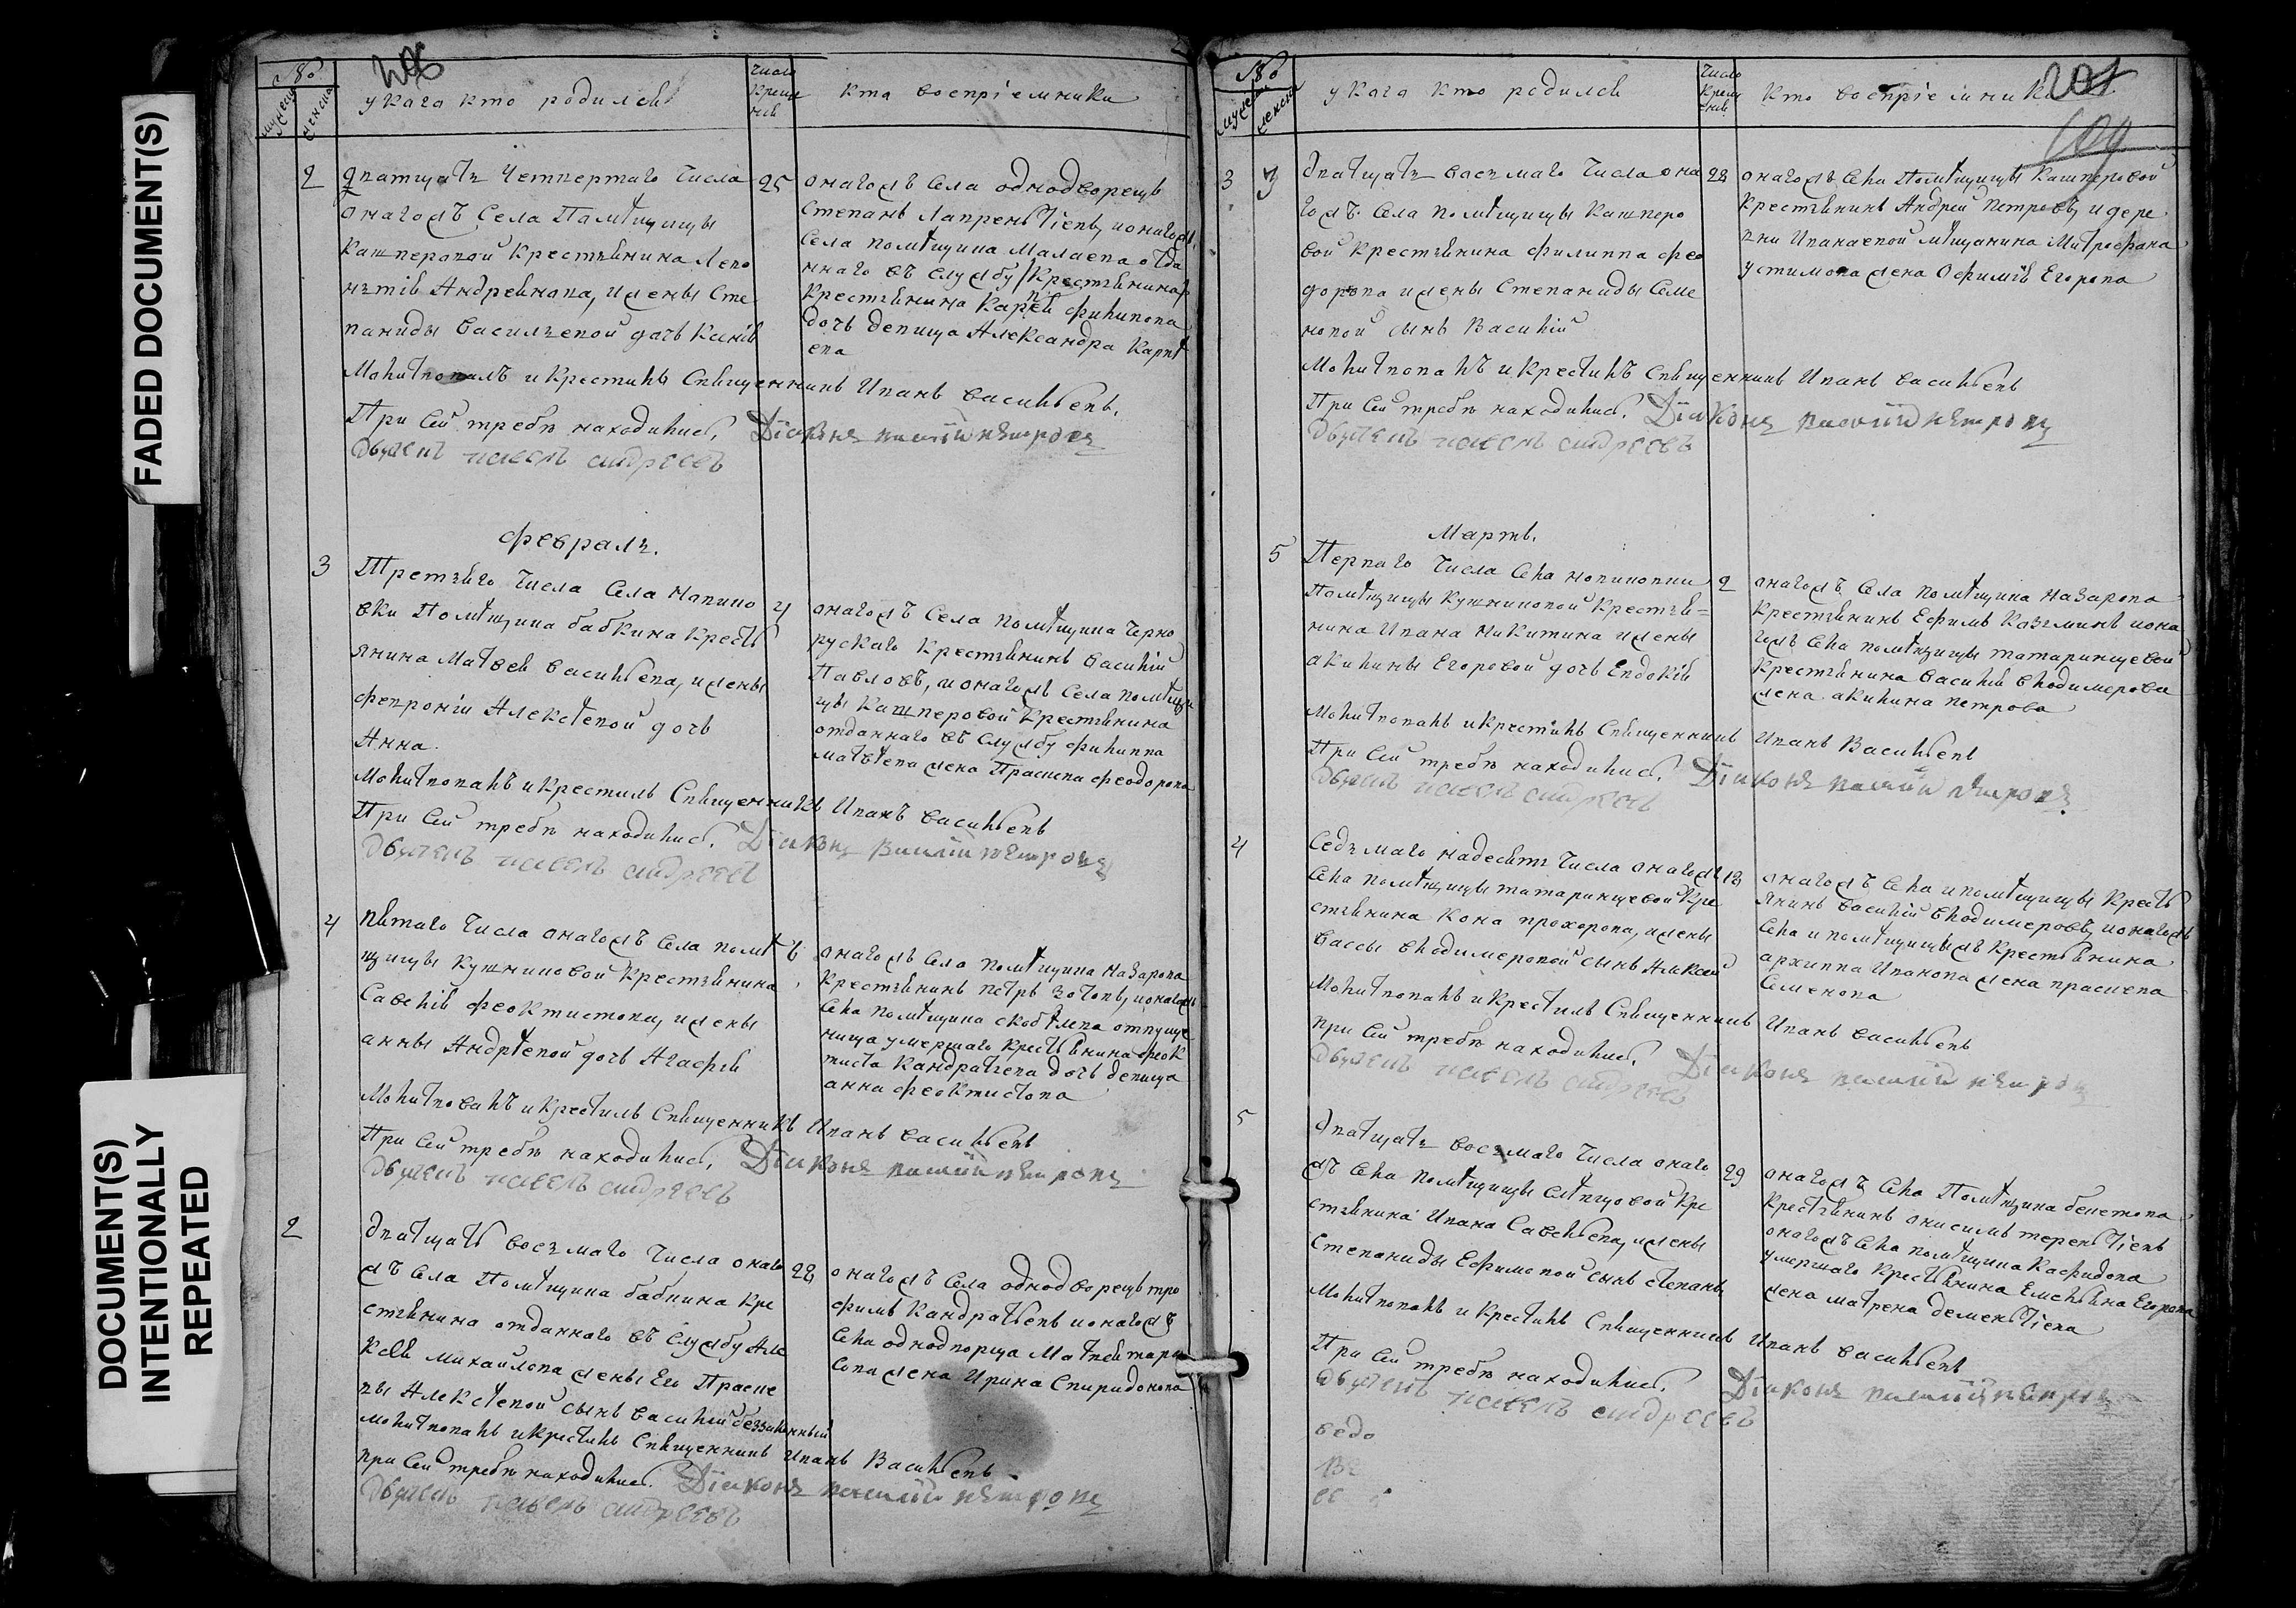 FADED DOCUMENT(S)
DOCUMENT(S)
INTENTIONALLY
REPEATED
№
мужеска
женска
у кого кто родился
число
креще
нія
кто воспріемники
2
дватцать четвертаго числа
онагожъ села Помѣщицы
Кашперовой крестьянина Лево
нтія Андреянова, и жены Сте
паниды Васильевой дочь Ксенія
25
онагожъ села однодворецъ
Степанъ Лаврентіевъ, и онагожъ
села помѣщика Малаева отда
ннаго въ службу крестьянина
Карпа Филипова
дочь девица Александра Карпѣ
ева
Молитвовалъ и крестилъ Священникъ Иванъ Васильевъ.
При сей требѣ находились. Діяконъ Василій Петровъ
дьячекъ Павелъ Андреевъ
Февраль.
3
Третьяго числа села Напино
вки Помѣщика Бабкина кресть
янина Матвея Васильева, и жены
Февроніи Алексѣевой дочь
Анна.
4
онагожъ села помѣщика Черно
рускаго крестьянинъ Василій
Павловъ, и онагожъ села помѣщи
цы Кашперовой крестьянина
отданнаго въ службу Филиппа
Матвѣева жена Прасковья Феодорова
Молитвовалъ и крестилъ Священникъ Иванъ Васильевъ
При сей требѣ находились. Діяконъ Василій Петровъ
дьячекъ Павелъ Андреевъ
4
пятаго числа онагожъ села помѣ
щицы Кушниновой крестьянина
Савелія Феоктистова, и жены
Анны Андрѣевой дочь Агафія
6
онагожъ села помѣщика Назарова
крестьянинъ Петръ Зотовъ, и онагожъ
села помѣщика Скобѣлева отпуще
ница умершаго крестьянина Феок
тиста Кандратьева дочь девица
Анна Феоктистова
Молитвовалъ и крестилъ Священникъ Иванъ Васильевъ
При сей требѣ находились, Діяконъ Василій Петровъ
дьячекъ Павелъ Андреевъ
2
дватцать восьмаго числа онаго
жъ села Помѣщика Бабкина кре
стьянина отданнаго въ службу Але
ксея Михайлова жены Его Праско
вьи Алексѣевой сынъ Василій беззаконный
28
онагожъ села однодворецъ Тро
фимъ Кандратьевъ и онагожъ
села однодворца Матвея Тара
сова жена Ирина Спиридонова
Молитвовалъ и крестилъ Священникъ Иванъ Васильевъ
при сей требѣ находились. Діяконъ Василій Петровъ
дьячекъ Павелъ Андреевъ
№
мужеска
женска
у кого кто родился
число
креще
нія
кто воспріемники
201
3
дватцать восьмаго числа она
гожъ села помѣщицы Кашперо
вой крестьянина Филиппа Фео
дорова и жены Степаниды Семе
новой сынъ Василій
28
онагожъ села Помѣщицы Кашперовой
крестьянинъ Андрей Петровъ, и дере
вни Иванаевой мѣщанина Митрофана
Устимова жена Офимія Егорова
Молитвовалъ и крестилъ Священникъ Иванъ Васильевъ
При сей требѣ находились. Діяконъ Василій Петровъ
дьячекъ Павелъ Андреевъ
Мартъ.
5
Перваго числа села Напиновки
Помѣщицы Кушниновой крестья=
нина Ивана Никитина и жены
Акилины Егоровой дочь Евдокія
2
онагожъ села помѣщика Назарова
крестьянинъ Ефимъ Казьминъ и она
гожъ села помѣщицы Татаринцевой
крестьянина Василія Владимерова
жена Акилина Петрова
Молитвовалъ и крестилъ Священникъ Иванъ Васильевъ
При сей требѣ находились. Діяконъ Василій Петровъ
дьячекъ Павелъ Андреевъ
4
Седьмаго надесять числа онагожъ
села помѣщицы Татаринцевой кре
стьянина Кона Прохорова, и жены
Вассы Владимеровой сынъ Алексей
18
онагожъ села и помѣщицы кресть
янинъ Василій Владимеровъ, и онагожъ
села и помѣщицыжъ крестьянина
Архиппа Иванова жена Прасковья
Семенова
Молитвовалъ и крестилъ Священникъ Иванъ Васильевъ
при сей требѣ находились. Діяконъ Василій Петровъ
дьячекъ Павелъ Андреевъ
5
дватцать восьмаго числа онаго
жъ села помѣщицы Слѣпцовой кре
стьянина Ивана Савельева, и жены
Степаниды Ефимовой сынъ Степанъ
29
онагожъ села Помѣщика
крестьянинъ Онисимъ Терентіевъ
онагожъ села помѣщика
умершаго крестьянина Емельяна Егорова
жена Матрена Дементіева
Молитвовалъ и крестилъ Священникъ Иванъ Васильевъ
При сей требѣ находились. Діяконъ Василій Петровъ
дьячекъ Павелъ Андреевъ